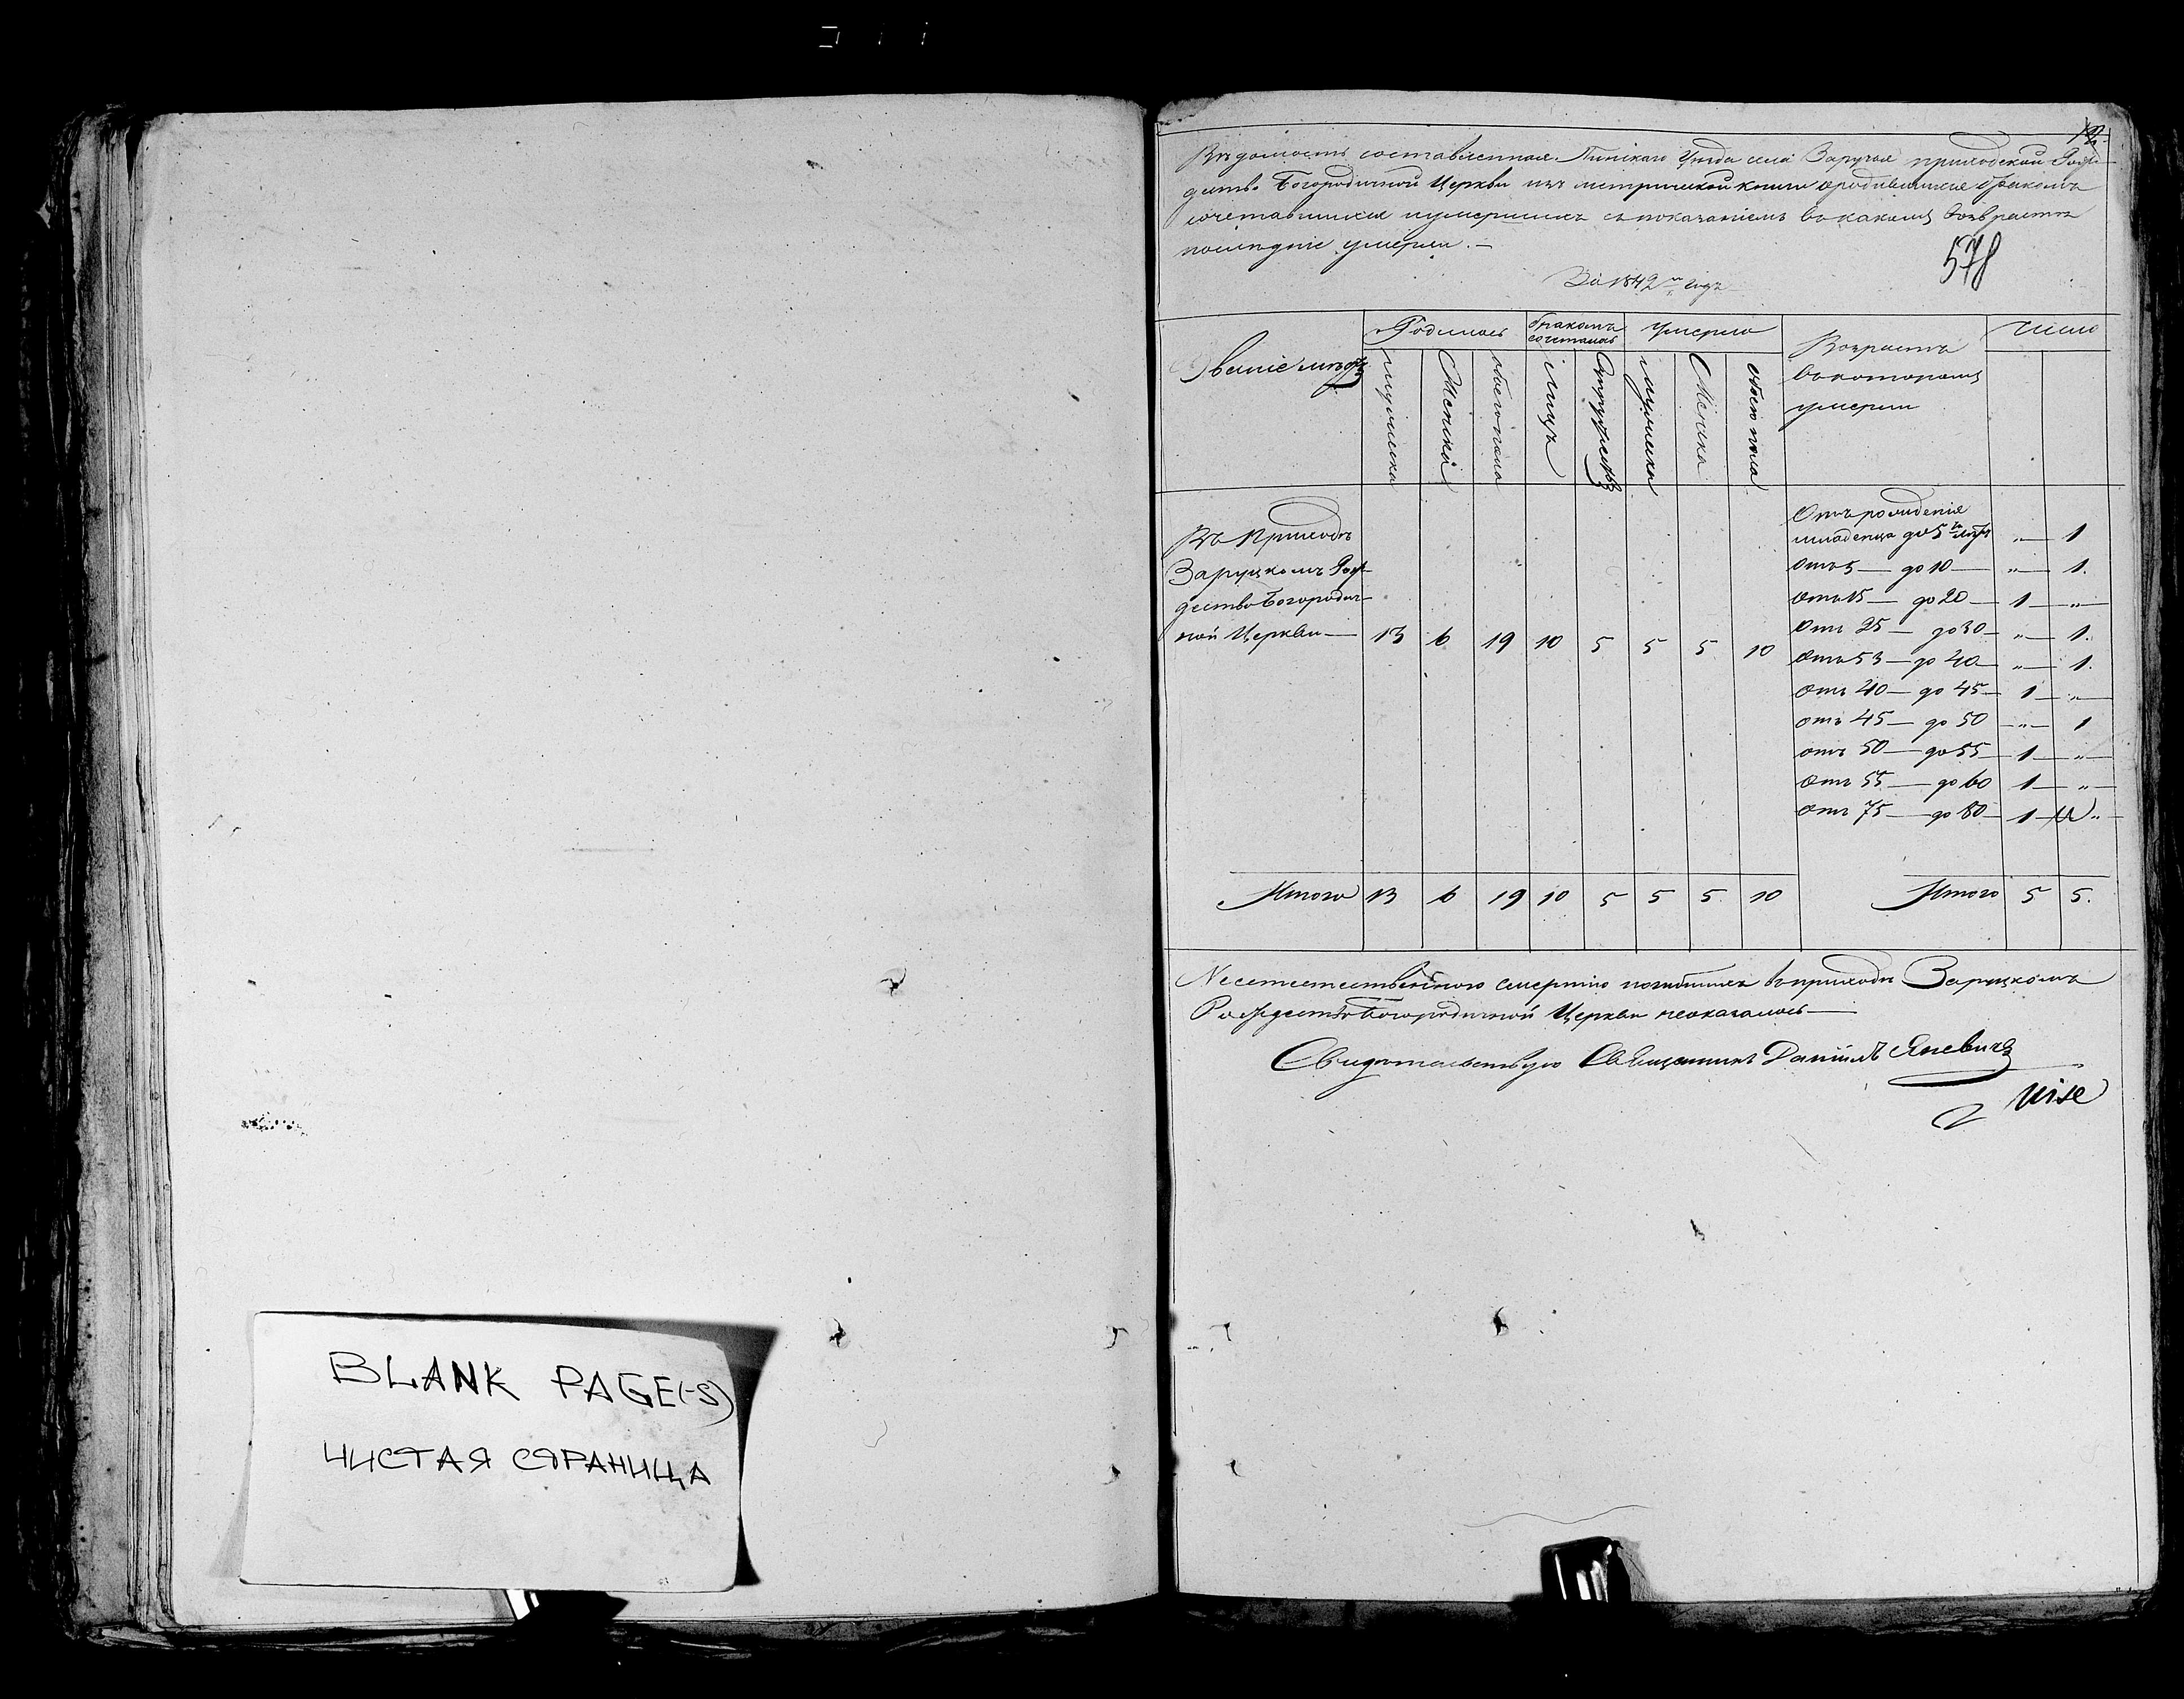 BLANK PAGE(-S)
ЧИСТАЯ СТРАНИЦА
12
Вѣдомость составленная Пинскаго Уѣзда села Заручья приходской Рож-
дество Богородичной Церкви изъ метрической книги о родившихся бракомъ
сочетавшихся и умершихъ съ показаніемъ въ какомъ возврастѣ
послѣдніе умерли. —
578
За 1842й годъ
Званіе мѣстъ
Родилось
бракомъ сочеталось
Умерло
Возрастъ
въ которомъ
умерли
Число
мужеска
Женска
обоего пола
лицъ
Супружествъ
мужеска
Женска
обоего пола
Въ Приходѣ
Заруцкомъ Рож-
дество Богородич-
ной Церкви — 13 6 19 10 5 5 5 10
Отъ рожденія
младенца до 5ти лѣтъ „ — 1
Отъ 5 — до 10 — „ — 1.
Отъ 15 — до 20 — 1 — „ —
Отъ 25 — до 30 — „ — 1.
Отъ 53 — до 40 — „ — 1.
Отъ 40 — до 45 — 1 — „ —
отъ 45 — до 50 — „ — 1
отъ 50 — до 55 — 1 — „ —
Отъ 55 — до 60 1 — „ —
Отъ 75 — до 80 — 1 — „ —
Итого 13 6 19 10 5 5 5. 10
Итого 5 5.
Неестественною смертію погибшихъ въ приходѣ Заруцкомъ
Рождество Богородичной Церкви неоказалось —
Свидѣтельствую Священникъ Даніилъ Яневичъ